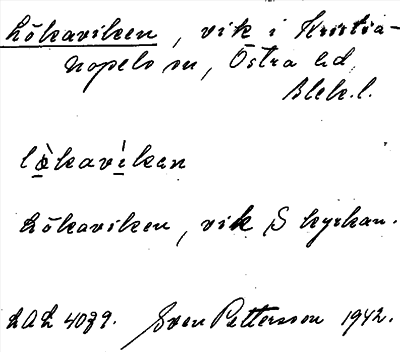 Lökaviken, vik i Kristia-
nopels sn, Östra hd
Blek.l.
lö̀kavìkan
Lökaviken, vik S kyrkan.
LAL 4039. Sven Pettersson 1942.